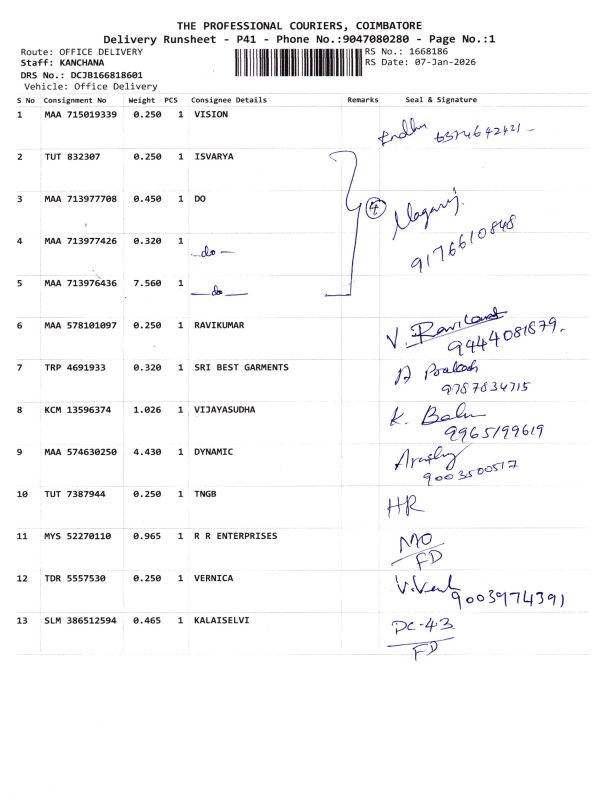 THE PROFESSIONAL COURIERS, COIMBATORE
Delivery Runsheet - P41 - Phone No.:9047080280 - Page No.:1
Route: OFFICE DELIVERY RS No.: 1668186
Staff: KANCHANA RS Date: 07-Jan-2026
DRS No.: DCJB166818601
Vehicle: Office Delivery
S No Consignment No Weight PCS Consignee Details Remarks Seal & Signature
1 MAA 715019339 0.250 1 VISION
6374642421 -
2 TUT 832307 0.250 1 ISVARYA
3 MAA 713977708 0.450 1 DO 4 Nagaraj.
4 MAA 713977426 0.320 1 -do- 9176610848
5 MAA 713976436 7.560 1 -do-
6 MAA 578101097 0.250 1 RAVIKUMAR V.
9444081879.
7 TRP 4691933 0.320 1 SRI BEST GARMENTS Prakash
9787834715
8 KCM 13596374 1.026 1 VIJAYASUDHA K. Balu
9965199619
9 MAA 574630250 4.430 1 DYNAMIC
9003500517
10 TUT 7387944 0.250 1 TNGB HR
11 MYS 52270110 0.965 1 R R ENTERPRISES
FD
12 TDR 5557530 0.250 1 VERNICA
9003974391
13 SLM 386512594 0.465 1 KALAISELVI DC-43
FD